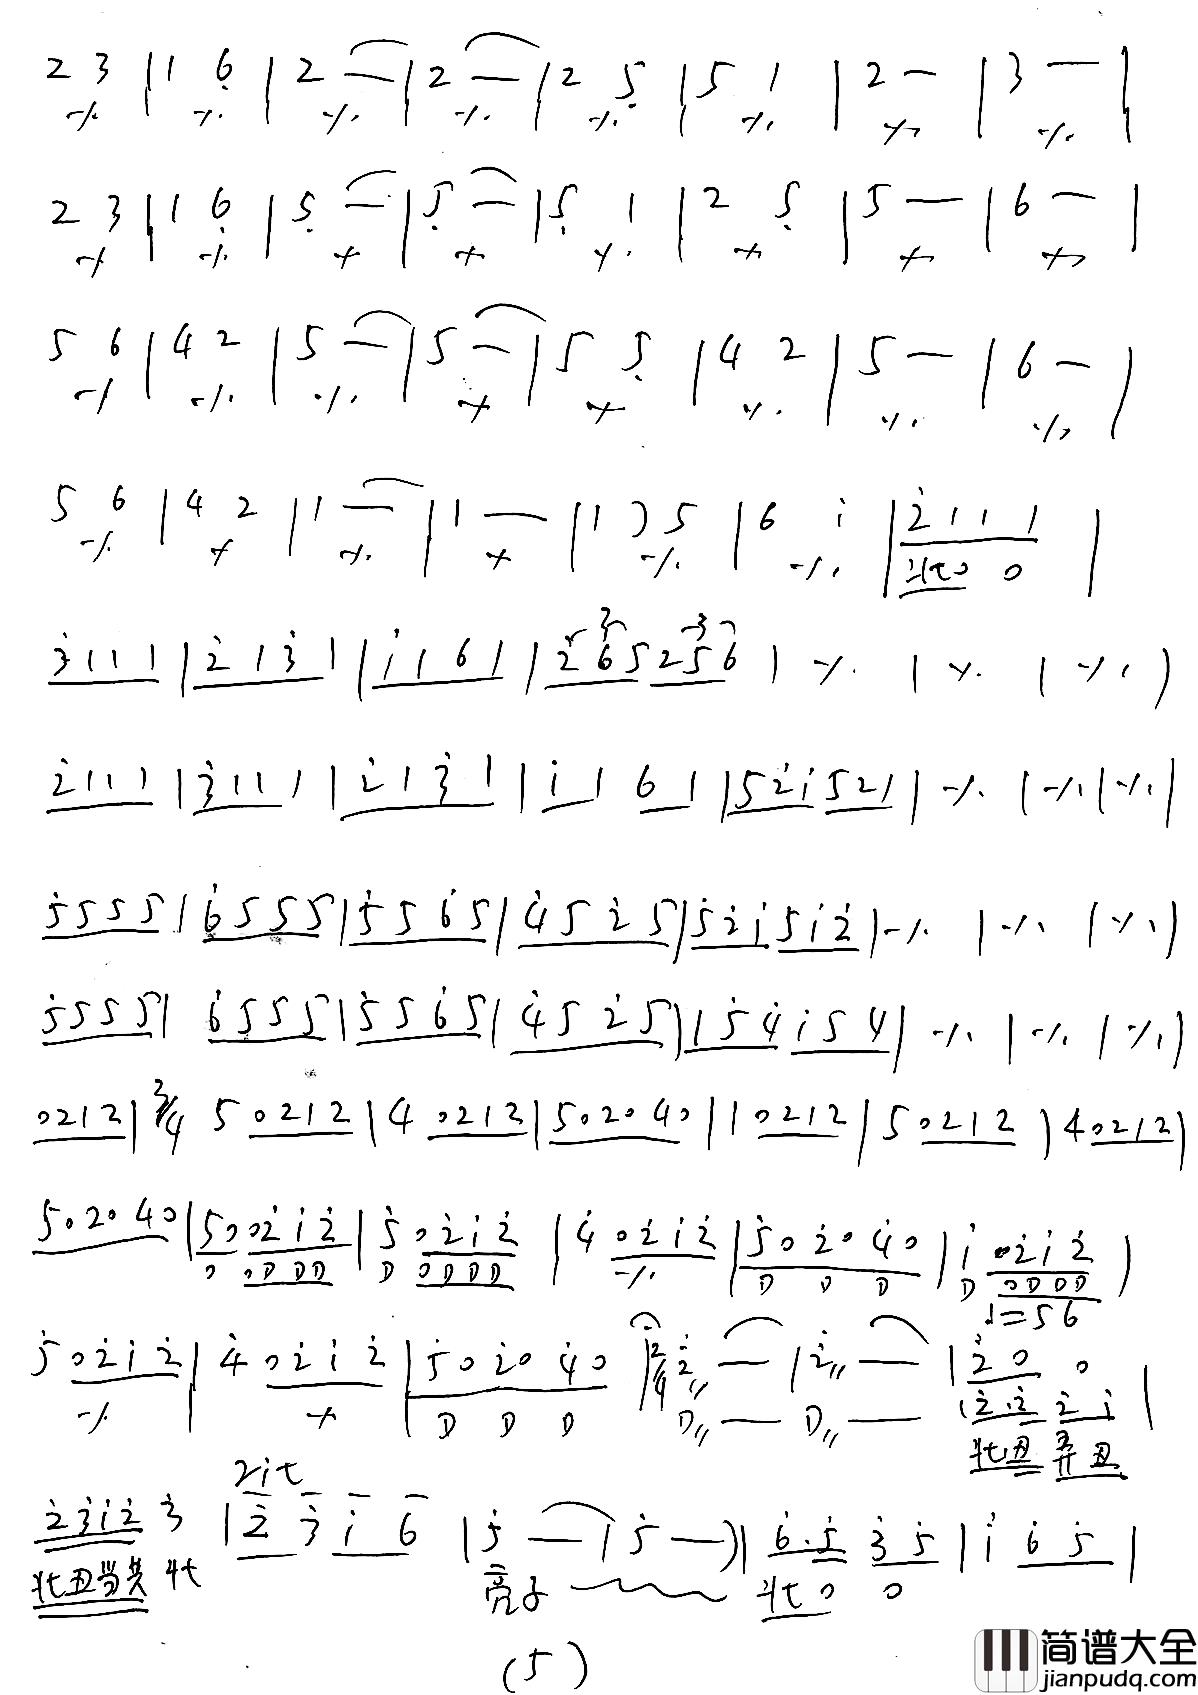 2 3 | 1 6̣ | 2 — | 2 — | 2 5̣ | 5 1 | 2 — | 3 — |
2 3 | 1 6̣ | 5̣ — | 5̣ — | 5̣ 1 | 2 5̣ | 5 — | 6 — |
5 6 | 4 2 | 5 — | 5 — | 5 5̣ | 4 2 | 5 — | 6 — |
5 6 | 4 2 | 1 — | 1 — | 1 ) 5 | 6 i | 2̇ 1 1 1 |
北 0 0
3̇ 1 1 1 | 2̇ 1 3̇ 1 | i 1 6 1 | 2̇ 6 5 2 5 6 | ٪ | ٪ | ٪ |
2̇ 1 1 1 | 3̇ 1 1 1 | 2̇ 1 3̇ 1 | i 1 6 1 | 5 2̇ i 5 2 1 | ٪ | ٪ | ٪ |
5̇ 5 5 5 | 6̇ 5 5 5 | 5̇ 5 6̇ 5 | 4̇ 5 2̇ 5 | 5̇ 2̇ i 5 i 2̇ | ٪ | ٪ | ٪ |
5̇ 5 5 5 | 6̇ 5 5 5 | 5̇ 5 6̇ 5 | 4̇ 5 2̇ 5 | 1 5̇ 4̇ i 5 4 | ٪ | ٪ | ٪ |
0 2 1 2 | 3/4 5 0 2 1 2 | 4 0 2 1 2 | 5 0 2 0 4 0 | 1 0 2 1 2 | 5 0 2 1 2 | 4 0 2 1 2 |
5 0 2 0 4 0 | 5 0 0 2̇ i 2̇ | 5̇ 0 2̇ i 2̇ | 4̇ 0 2̇ i 2̇ | 5̇ 0 2̇ 0 4̇ 0 | i 0 2̇ i 2̇ |
0 0 D D D D 0 D D D ٪ D D D D 0 D D D
♩=56
5̇ 0 2̇ i 2̇ | 4̇ 0 2̇ i 2̇ | 5̇ 0 2̇ 0 4̇ 0 | 2/4 2̇ — | 2̇ — | 2̇ 0 0 |
D D D D — D — ( 2̇. 2̇ 2̇ i
rit
2̇ 3̇ i 2̇ 3̇ | 2̇ 3̇ i 6 | 5̇ — | 5̇ — ) | 6̇. 5̇ 3̇ 5̇ | i 6̇ 5̇ |
亮子
(5)
简谱大全
jianpudq.com